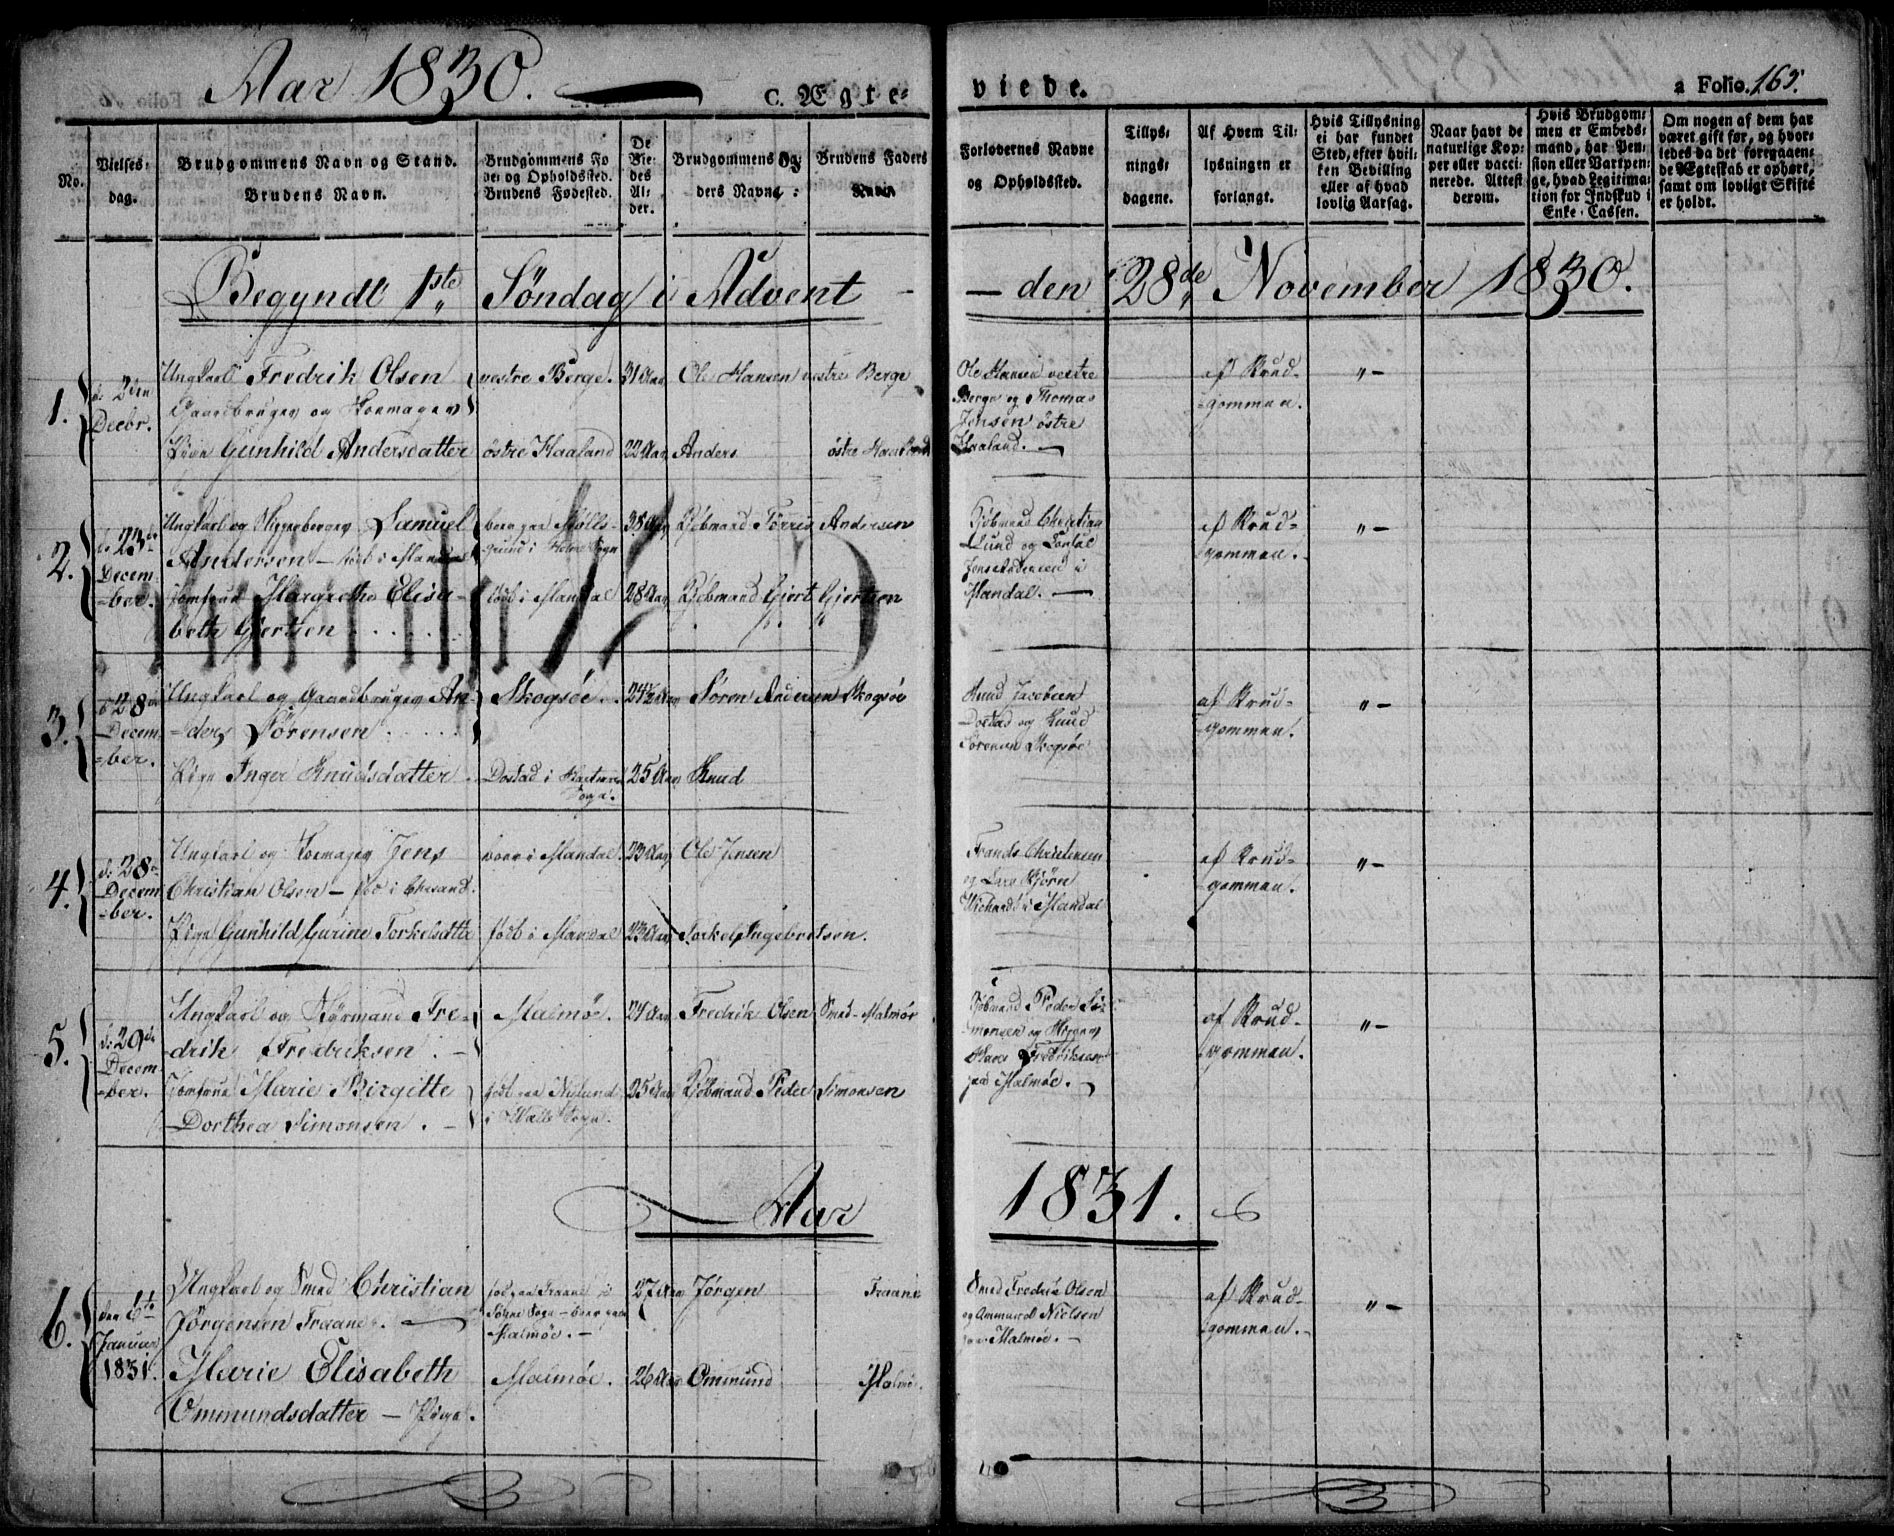 Aar 1830. C. Ægte= viede. a Folio. 165.
No.
Vielses=
dag.
Brudgommens Navn og Stand.
Brudens Navn.
Brudgommens Fø
de= og Opholdssted.
Brudens Fødested.
De
Vie=
des
Al=
der.
Brudgommens Fa=
ders Navne
Brudens Faders
Navn
Forlovernes Navne
og Opholdssted.
Tillys=
nings=
dagene.
Af Hvem Til=
lysningen er
forlangt.
Hvis Tillysning
ei har fundet
Sted, efter hvil=
ken Bevilling
eller af hvad
lovlig Aarsag.
Naar havt de
naturlige Kop=
per eller vacci=
nerede. Attest
derom.
Hvis Brudgom=
men er Embeds=
mand, har Pen=
sion eller Vartpen=
ge, hvad Legitima=
tion for Indskud i
Enke=Cassen.
Om nogen af dem har
været gift før, og hvor=
ledes da det foregaaen=
de Ægteskab er ophørt,
samt om lovligt Skifte
er holdt.
Begyndt 1ste Søndag i Advent – den 28de November 1830.
1.
d: 2den
Decbr.
Ungkarl Fredrik Olsen
Gaardbruger og Skomager
Pigen Gunhild Andersdatter
vestre Berge.
østre Haaland
31 Aar
22 Aar
Ole Hansen vestre Berge
Anders østre Haaland
Ole Hansen vestre
Berge og Thomas
Jensen østre
Haaland. –
af Brud-
gommen.
" –
2.
d: 23de
Decem-
ber.
Ungkarl og Samuel
Andersen – født i Mandal
Jomfrue Margrethe Elisa-
beth Gjertsen
i Holme Sogn
født i Mandal
38 Aar
28 Aar
Kjøbmand Torris Andersen
Kjøbmand Gjert Gjertsen
Kjøbmand Christian
Lund og
i
Mandal. –
af Brud-
gommen.
" –
3.
d: 28de
Decem-
ber.
Ungkarl og Gaardbruger An-
ders Sørensen
Pigen Inger Knudsdatter
Skogsøe.
Dostad i
Sogn.
24½ Aar
25 Aar
Søren Andersen Skogsøe
Knud
Knud Jacobsen
Dostad og Knud
Sørensen Skogsøe
af Brud-
gommen.
" –
4.
d: 28de
Decem-
ber.
Ungkarl og Skomager Jens
Christian Olsen – fød i Chrsand.
Pigen Gunhild Gurine Torkelsdatter
boer i Mandal.
født i Mandal
23 Aar
23 Aar
Ole Jensen
Torkel Ingebretsen.
Frands Christensen
og Lars Bjørn
i Mandal
af Brud-
gommen.
" –
5.
d: 29de
Decem-
ber.
Ungkarl og Styrmand Fre-
drik Fredriksen. –
Jomfrue Marie Birgitte
Dorthea Simonsen. –
Malmøe.
født paa
i Halse Sogn.
24 Aar
25 Aar
Fredrik Olsen Smed – Malmøe
Kjøbmand Peder Simonsen
Kjøbmand Peder Si-
monsen og
Hans Fredriksen
paa Malmøe.
af Brud-
gommen.
" –
Aar 1831.
6.
den 6te
Januar
1831.
Ungkarl og Smed Christian
Jørgensen Traane. –
Marie Elisabeth
Ommundsdatter – Pige.
fød paa Traane i
Søgne Sogn – boer paa
Malmøe. –
Malmøe.
27 Aar
26 Aar
Jørgen Traane
Ommund Malmøe.
Smed Fredrik Olsen
og Ammund Nielsen
paa Malmøe. –
af Brud-
gommen. –
" –